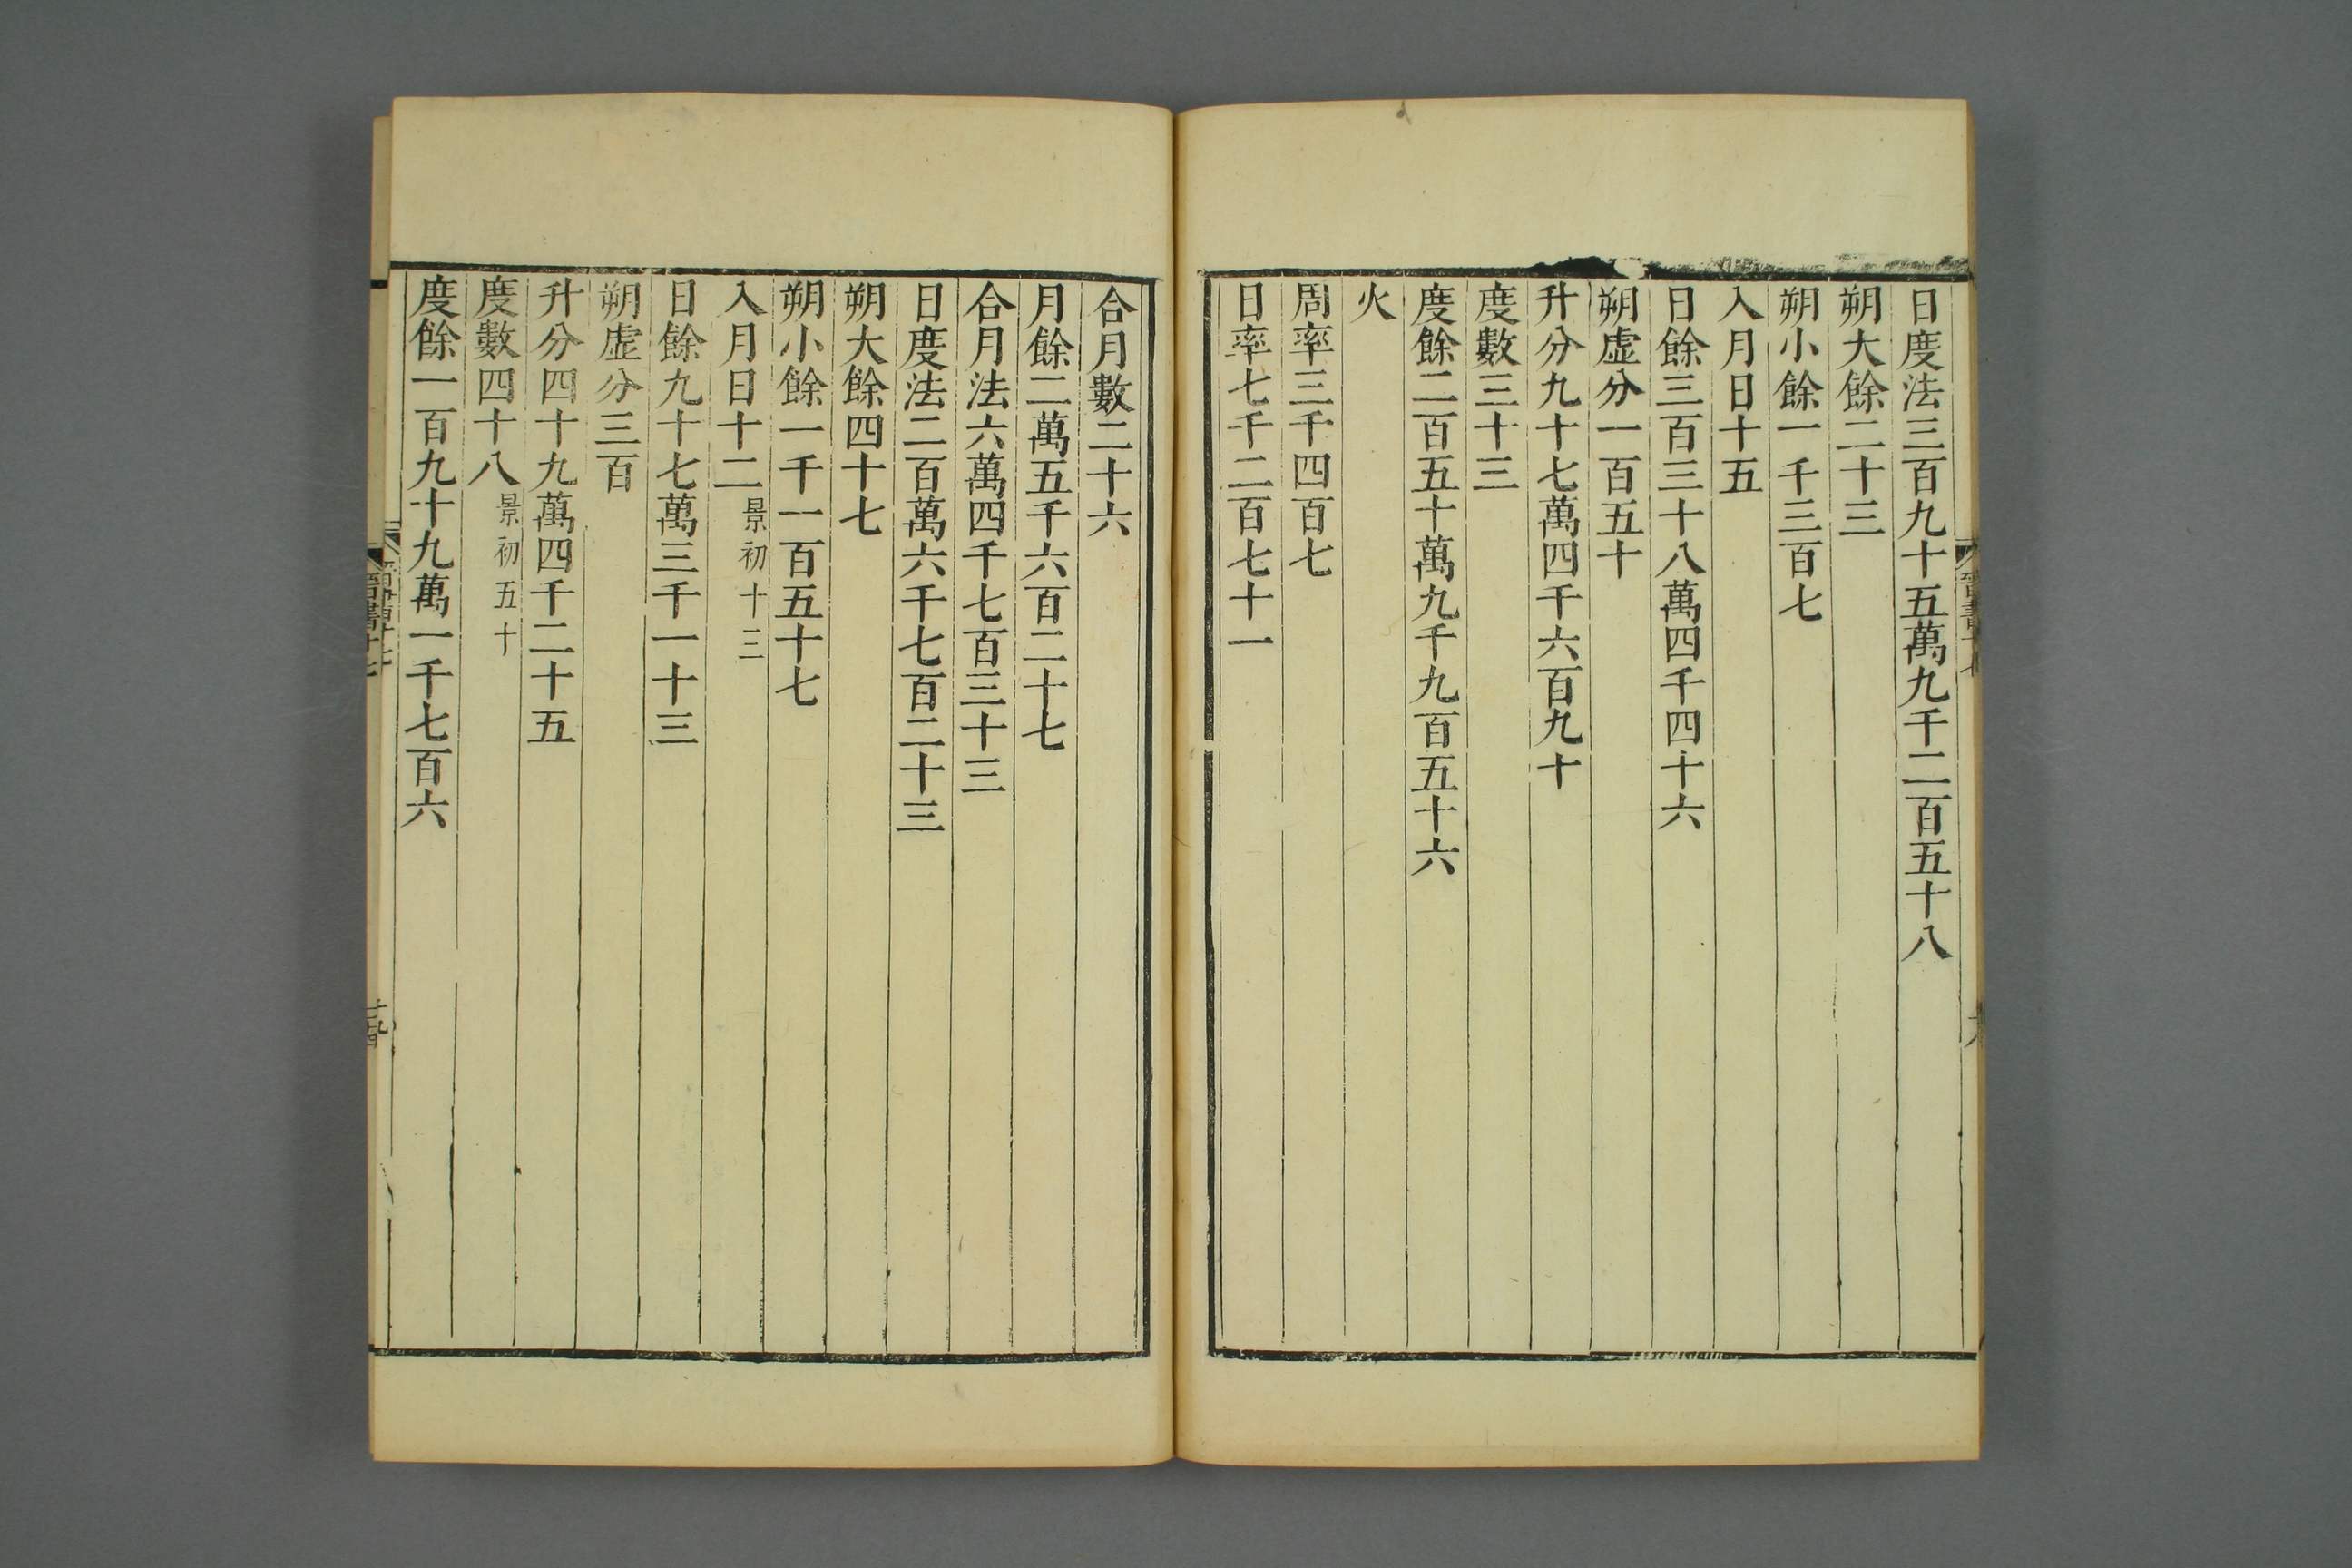 日度法三百九十五萬九千二百五十八
朔大餘二十三
朔小餘一千三百七
入月日十五
日餘三百三十八萬四千四十六
朔虛分一百五十
升分九十七萬四千六百九十
度數三十三
度餘二百五十萬九千九百五十六
火
周率三千四百七
日率七千二百七十一
合月數二十六
月餘二萬五千六百二十七
合月法六萬四千七百三十三
日度法二百萬六千七百二十三
朔大餘四十七
朔小餘一千一百五十七
入月日十二景初十三
日餘九十七萬三千一十三
朔虛分三百
升分四十九萬四千二十五
度數四十八景初五十
度餘一百九十九萬一千七百六